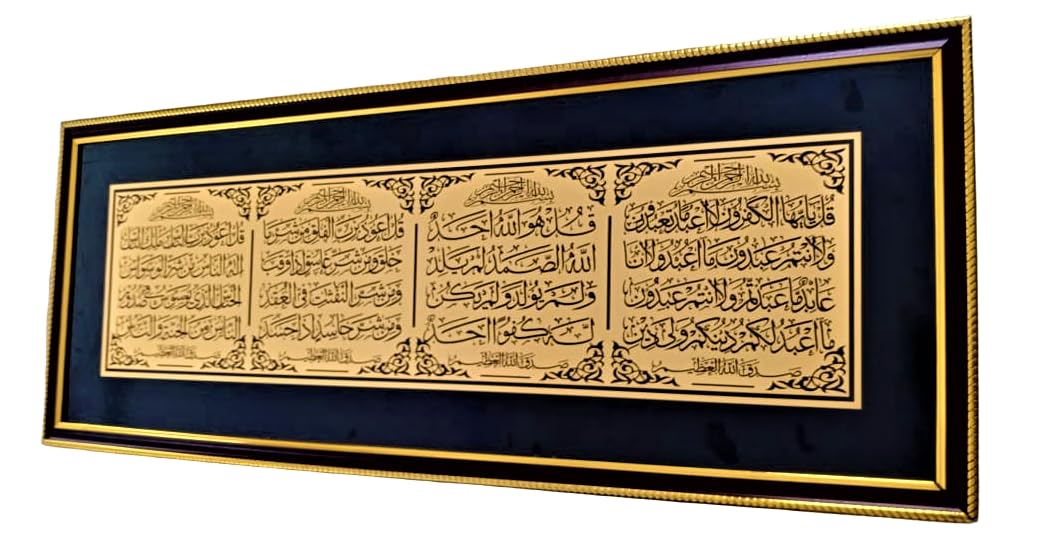 بسم الله الرحمن الرحيم
قل يأيها الكفرون لا أعبد ما تعبدون
ولا أنتم عبدون ما أعبد ولا أنا
عابد ما عبدتم ولا أنتم عبدون
ما أعبد لكم دينكم ولي دين
صدق الله العظيم
بسم الله الرحمن الرحيم
قل هو الله أحد
الله الصمد لم يلد
ولم يولد ولم يكن
له كفوا أحد
صدق الله العظيم
بسم الله الرحمن الرحيم
قل أعوذ برب الفلق من شر ما
خلق ومن شر غاسق إذا وقب
ومن شر النفثت في العقد
ومن شر حاسد إذا حسد
صدق الله العظيم
بسم الله الرحمن الرحيم
قل أعوذ برب الناس ملك الناس
إله الناس من شر الوسواس
الخناس الذي يوسوس في صدور
الناس من الجنة والناس
صدق الله العظيم